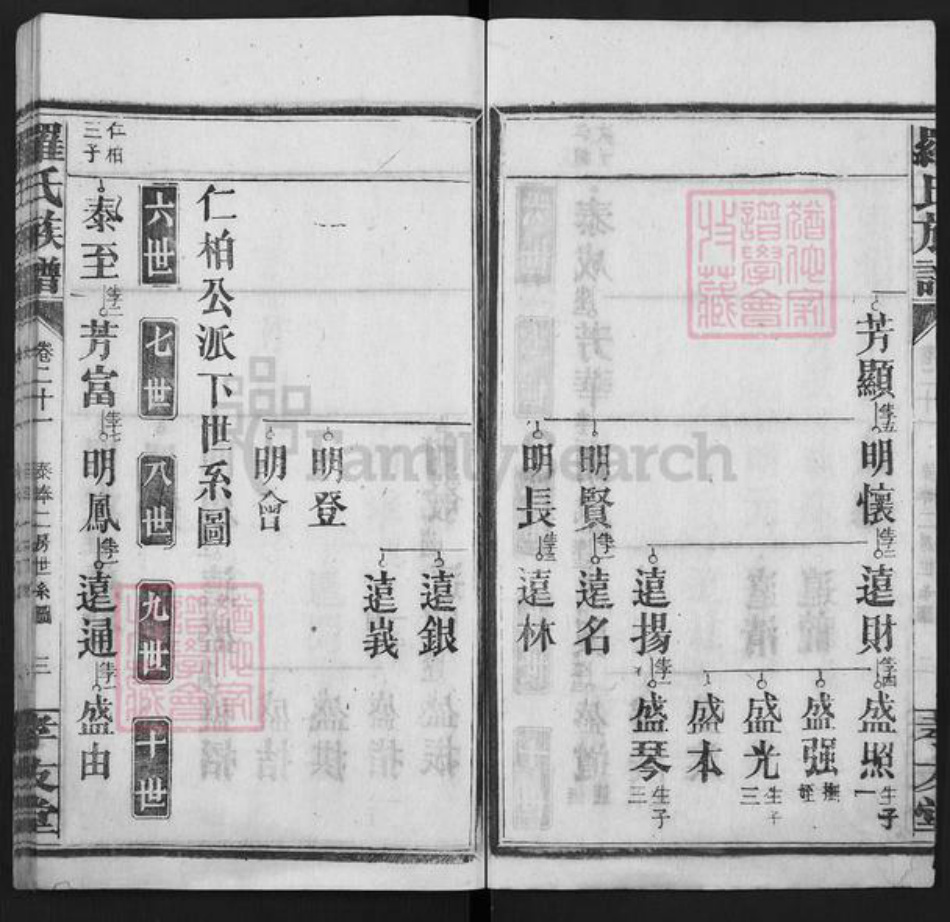 羅氏族譜
孝友堂
芳顯 生五 明懷 生二 遠財 生四 盛照 生子一
盛强 撫姪
盛光 生子三
盛本
遠揚 生一 盛琴 生子三
明賢 生一 遠名
明長 生一 遠林
遠銀
遠義
明登
明會
仁柏公派下世系圖
六世 七世 八世 九世 十世
仁柏三子
泰至 生二 芳富 生七 明鳳 生一 遠通 生一 盛由
羅氏族譜 卷二十一 泰峰二房世系圖 三 孝友堂
猶他家譜學會收藏
猶他家譜學會收藏
FamilySearch